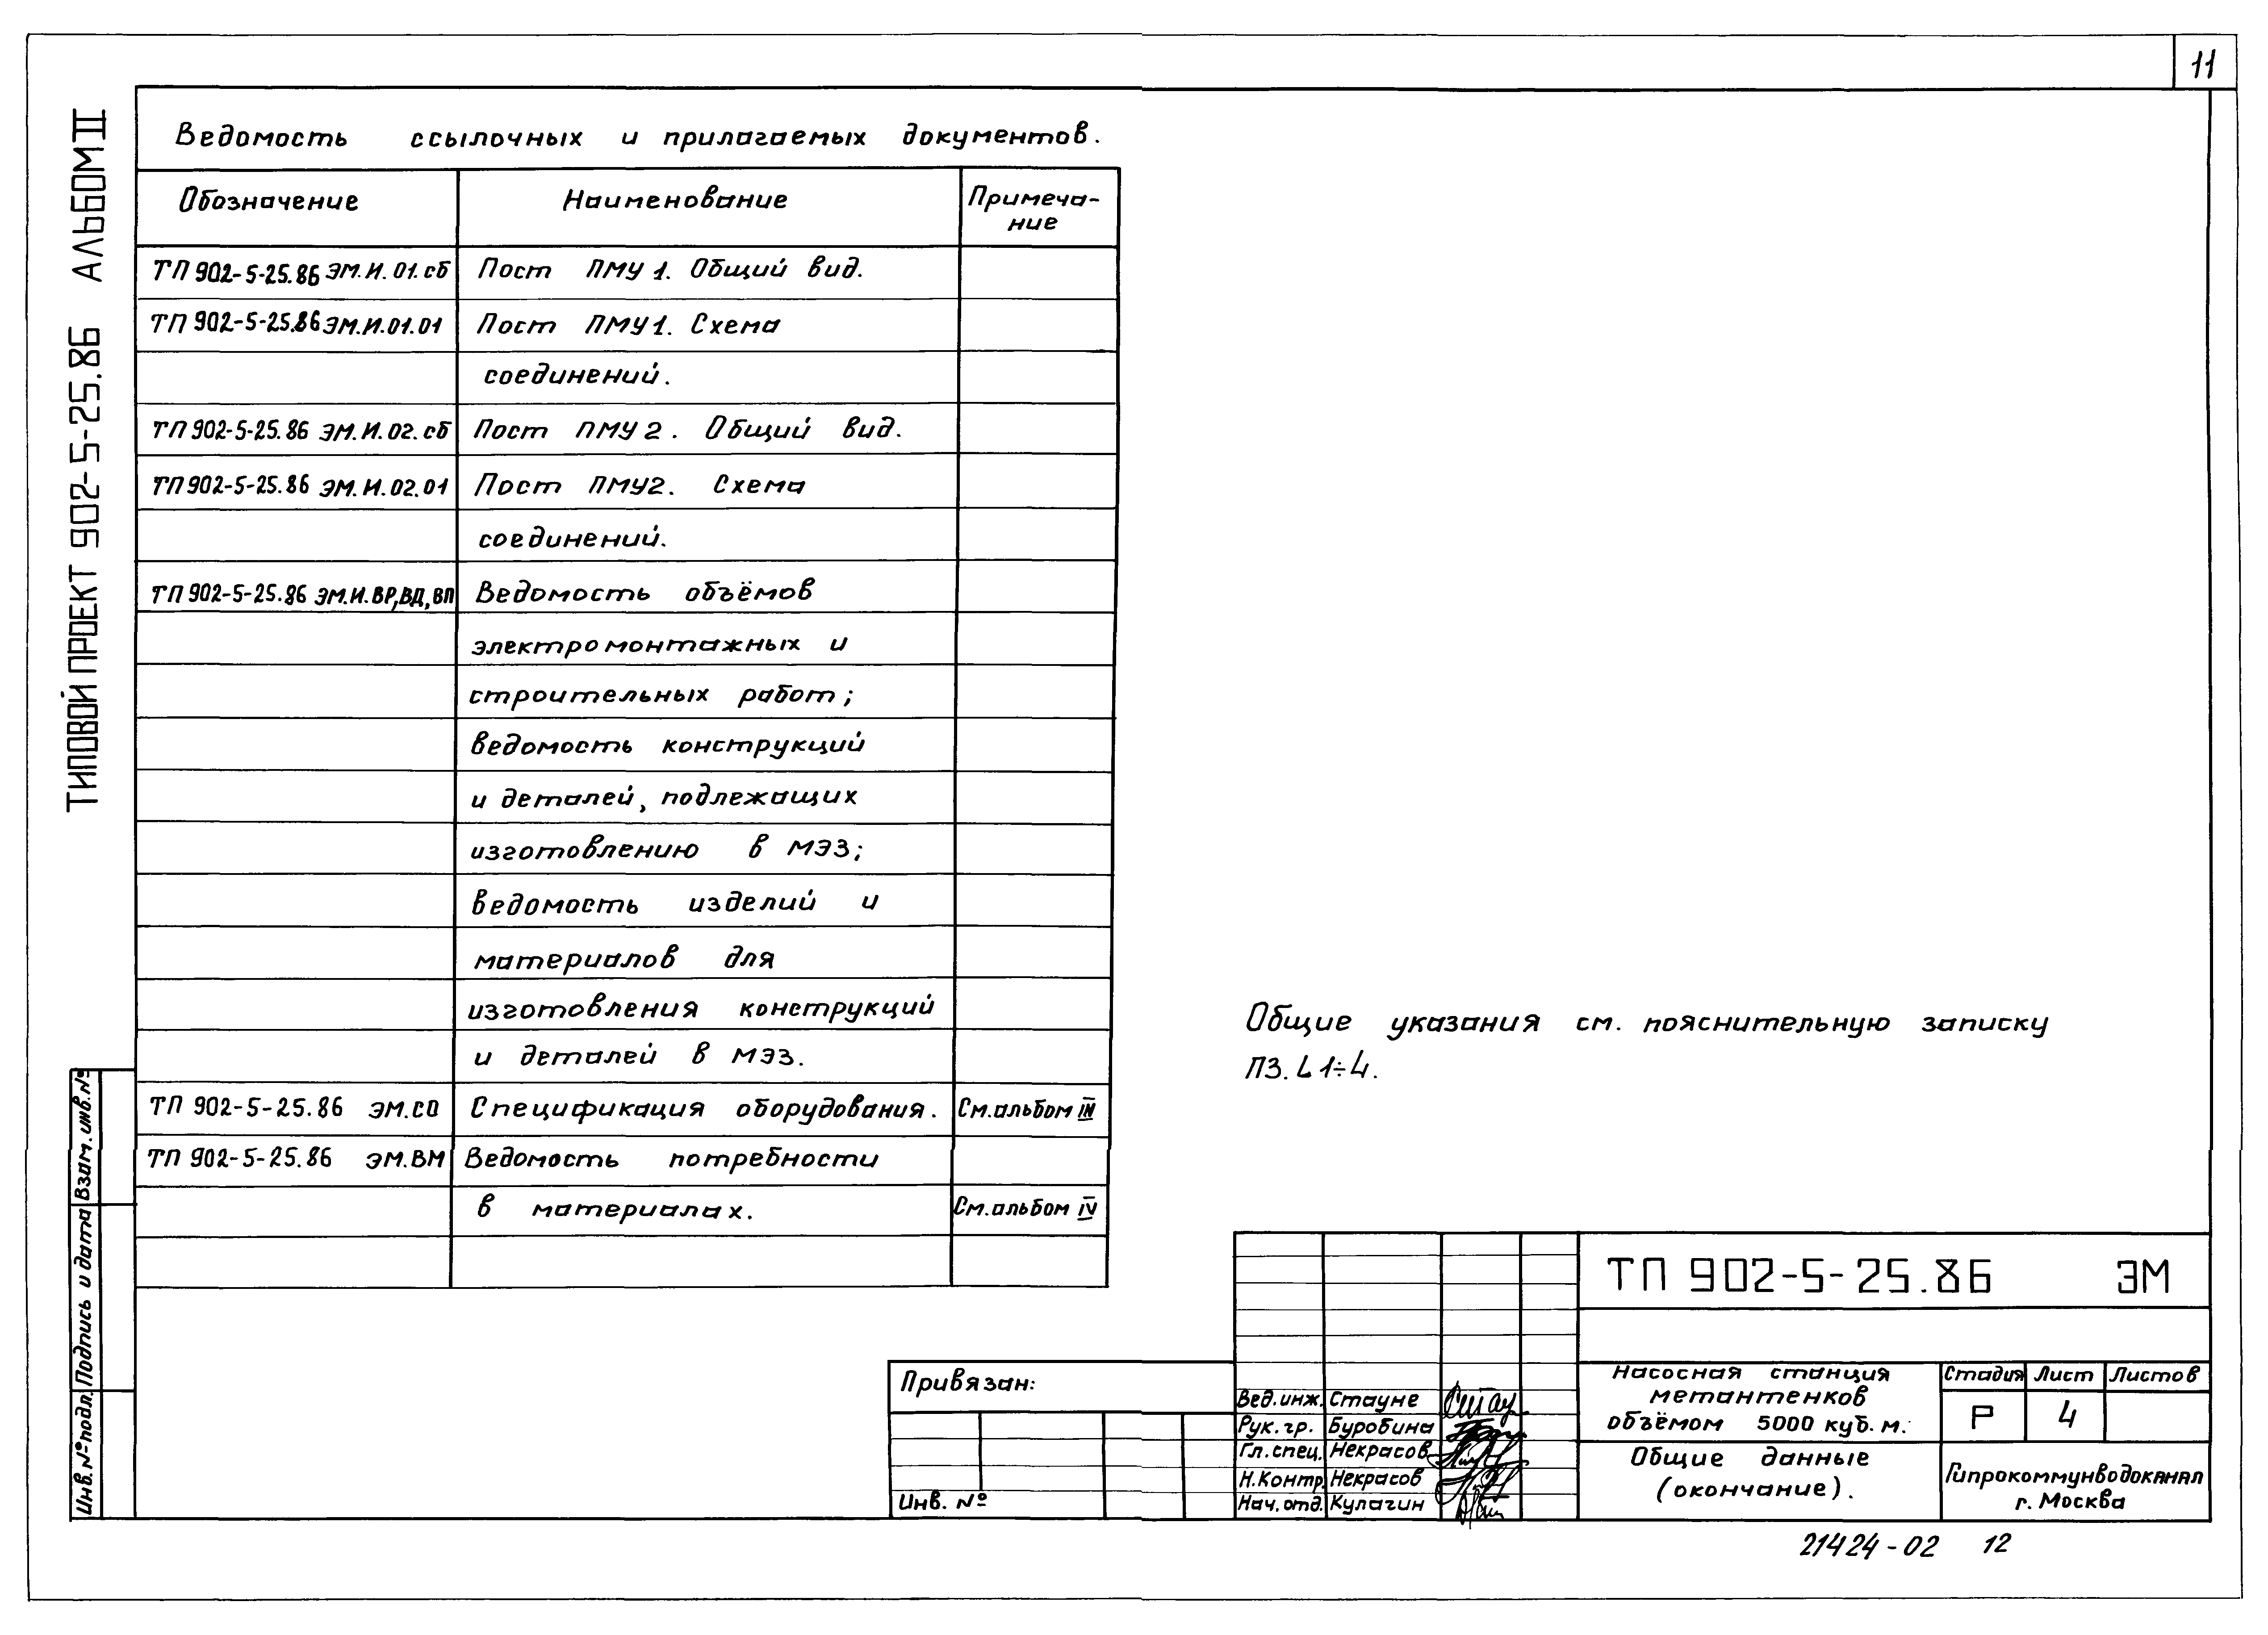 11
ТИПОВОЙ ПРОЕКТ 902-5-25.86 АЛЬБОМ II
Ведомость ссылочных и прилагаемых документов.
Обозначение Наименование Примеча-
ние
ТП 902-5-25.86 ЭМ.И.01.сб Пост ПМУ 1. Общий вид.
ТП 902-5-25.86 ЭМ.И.01.01 Пост ПМУ1. Схема
соединений.
ТП 902-5-25.86 ЭМ.И.02.сб Пост ПМУ 2. Общий вид.
ТП 902-5-25.86 ЭМ.И.02.01 Пост ПМУ2. Схема
соединений.
ТП 902-5-25.86 ЭМ.И.ВР,ВД,ВП Ведомость объёмов
электромонтажных и
строительных работ;
ведомость конструкций
и деталей, подлежащих
изготовлению в МЭЗ;
ведомость изделий и
материалов для
изготовления конструкций
и деталей в МЭЗ.
ТП 902-5-25.86 ЭМ.СО Спецификация оборудования. См.альбом III
ТП 902-5-25.86 ЭМ.ВМ Ведомость потребности
в материалах. См.альбом IV
Общие указания см. пояснительную записку
ПЗ. L 1÷4.
Взам.инв.№
Подпись и дата
Инв.№подл.
Привязан:
Инв. №
Вед.инж. Стауне
Рук.гр. Буробина
Гл.спец. Некрасов
Н.Контр. Некрасов
Нач.отд. Кулагин
ТП 902-5-25.86 ЭМ
Насосная станция
метантенков
объёмом 5000 куб.м.
Стадия Лист Листов
Р 4
Общие данные
(окончание).
Гипрокоммунводоканал
г. Москва
21424-02 12